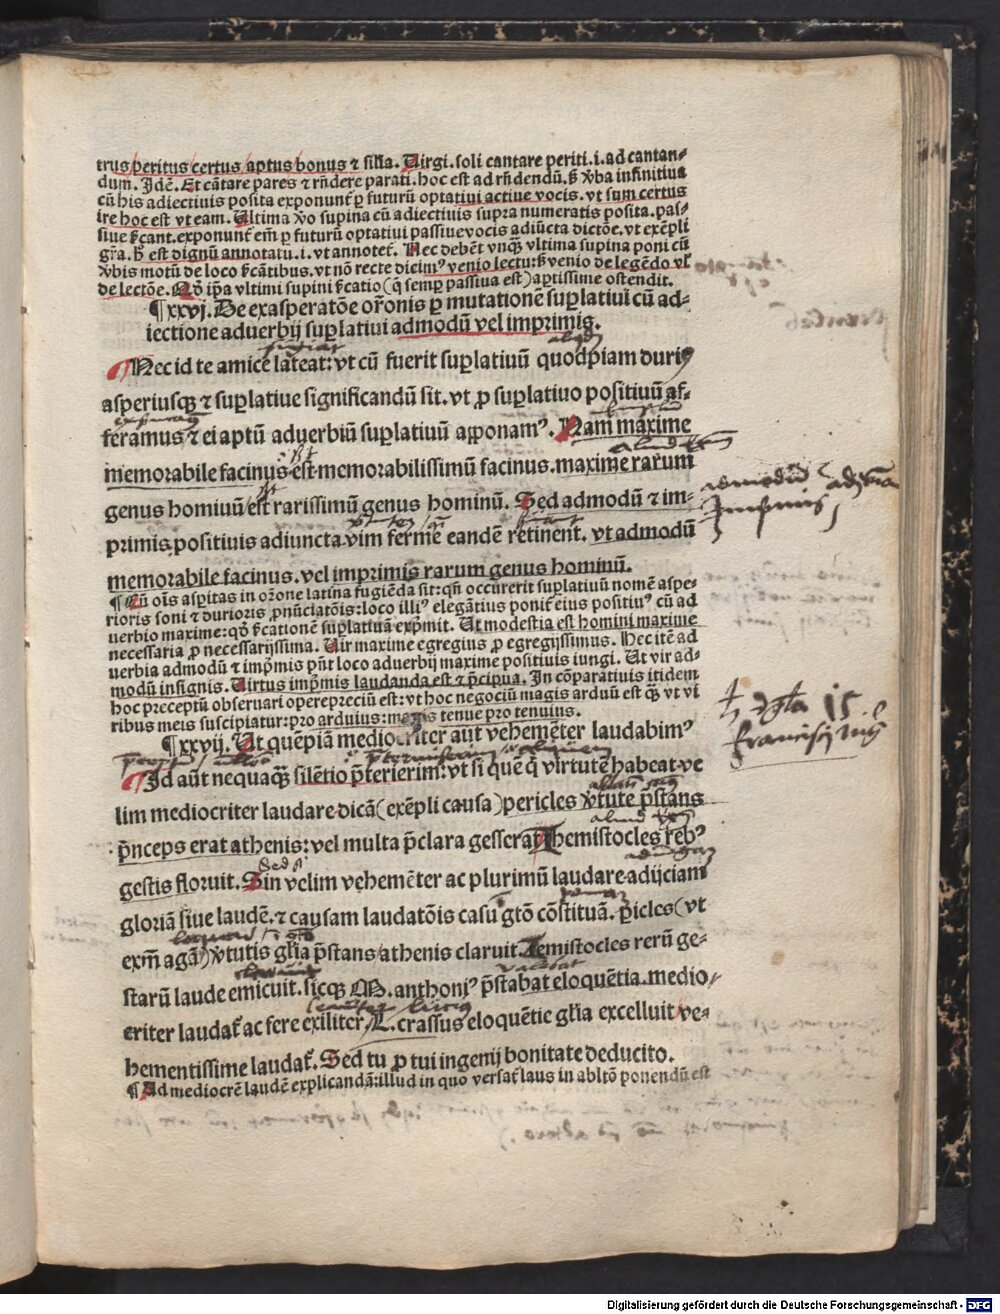 trus peritus certus aptus bonus ⁊ silia. Uirgi. soli cantare periti. i. ad cantan⸗
dum. Idē. Et cātare pares ⁊ rn̄dere parati. hoc est ad rn̄dendū. s̄ v̄ba infinitiua
cū his adiectiuis posita exponunt̄ ꝑ futurū optatiui actiue vocis. vt sum certus
ire hoc est vt eam. Ultima v̄o supina cū adiectiuis supra numeratis posita. pas⸗
siue s̄cant. exponunt̄ em̄ ꝑ futurū optatiui passiue vocis adiūcta dictōe. vt exēpli
gr̄a. h̄ est dignū annotatu. i. vt annotet̄. Nec debēt vnqꝫ vltima supina poni cū
v̄bis motū de loco s̄cātibus. vt nō recte dicimꝰ venio lectu: s̄ venio de legēdo vl̓
de lectōe. Nō ip̄a vltimi supini s̄catio (q̄ semꝑ passiua est) aptissime ostendit.
¶ xxvj. De exasperatōe or̄onis ꝑ mutationē suꝑlatiui cū ad⸗
iectione aduerbij suꝑlatiui admodū vel imprimis.
Nec id te amice lateat: vt cū fuerit suꝑlatiuū quodpiam duriꝰ
asperiusqꝫ ⁊ suꝑlatiue significandū sit. vt ꝓ suꝑlatiuo positiuū af⸗
feramus ⁊ ei aptū aduerbiū suꝑlatiuū aꝓonamꝰ. Nam maxime
memorabile facinus est memorabilissimū facinus. maxime rarum
genus homiuū est rarissimū genus hominū. Sed admodū ⁊ im⸗
primis positiuis adiuncta vim ferme eandē retinent. vt admodū
memorabile facinus. vel imprimis rarum genus hominū.
¶ Cū oīs aspitas in or̄one latina fugiēda sit: qn̄ occurerit suꝑlatiuū nomē aspe⸗
rioris soni ⁊ durioris ꝓnūciatōis: loco illiꝰ elegātius ponit̄ eius positiuꝰ cū ad
uerbio maxime: qd̄ s̄cationē suꝑlatiuā exp̄mit. Ut modestia est homini maxime
necessaria ꝓ necessarijssima. Uir maxime egregius ꝓ egregijssimus. Hec itē ad
uerbia admodū ⁊ imp̄mis pn̄t loco aduerbij maxime positiuis iungi. Ut vir ad⸗
modū insignis. Uirtus imp̄mis laudanda est ⁊ p̄cipua. In cōparatiuis itidem
hoc preceptū obseruari operepreciū est: vt hoc negociū magis arduū est qꝫ vt vi
ribus meis suscipiatur: pro arduius: magis tenue pro tenuius.
¶ xxvij. Ut quēpiā mediocriter aut vehemēter laudabimꝰ
Id aūt nequaqꝫ silētio p̄terierim: vt si quē ꝙ virtutē habeat ve
lim mediocriter laudare dicā (exēpli causa) pericles v̄tute p̄stans
p̄nceps erat athenis: vel multa p̄clara gesserat Themistocles rebꝰ
gestis floruit. Sin velim vehemēter ac plurimū laudare adijciam
gloriā siue laudē. ⁊ causam laudatōis casu gtō cōstituā. p̄icles (vt
exm̄ agā) v̄tutis gl̄ia p̄stans athenis claruit. Temistocles rerū ge⸗
starū laude emicuit. sicqꝫ M. anthoniꝰ p̄stabat eloquētia. medio
eriter laudat̄ ac fere exiliter, L. crassus eloquētie gl̄ia excelluit ve⸗
hementissime laudat̄. Sed tu ꝓ tui ingenij bonitate deducito.
¶ Ad mediocrē laudē explicandā: illud in quo versat̄ laus in abltō ponendū est
admodū
Imprimis
15
francisci
Digitalisierung gefördert durch die Deutsche Forschungsgemeinschaft - DFG